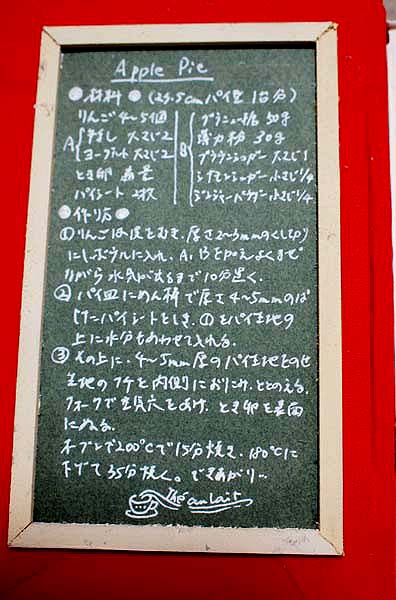 Apple Pie
●材料● (23.5cmパイ皿 1台分)
りんご 4~5個
A
干ぶどう 大さじ2
ヨーグルト 大さじ2
とき卵 適量
パイシート 2枚
B
ブラニュー糖 50g
薄力粉 30g
ブラウンシュガー 大さじ1
シナモンシュガー 小さじ1/4
ジンジャーパウダー 小さじ1/4
●作り方●
①りんごは皮をむき、厚さ2~3mmのくし切り
にしボウルに入れ、A、Bを加えよくまぜ
ながら水気が出るまで10分置く。
②パイ皿にめん棒で厚さ4~5mmのば
したパイシートをしき、①をパイ生地の
上に水分もあわせて入れる。
③その上に、4~5mm厚のパイ生地をのせ
生地のフチを内側におりこみ、ととのえる。
フォークで空気穴をあけ、とき卵を表面
にぬる。
オーブンで200℃で15分焼き、180℃に
下げて35分焼く。できあがり…
Thé au lait